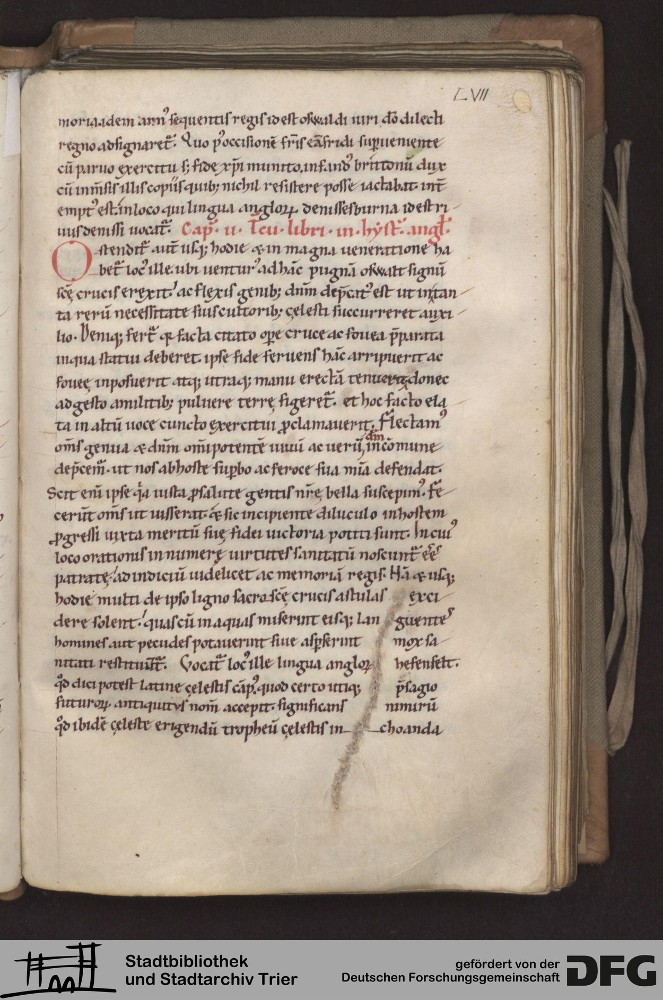 LVII
moria idem annꝰ sequentis regis id est osuualdi uiri dō dilecti
regno adsignaret᷑. Quo p̱ occisionē fr̄is eanfridi supueniente
cū paruo exercitu s; fide xp̄i munito, infandꝰ brittonū dux
cū inm̄sis illis copiis quib; nichil resistere posse iactabat. int̄
empt᷒ est. in loco qui lingua anglorꝝ denissesburna id est ri
uus denissi uocat᷑. Cap̄. ii. Tcii. libri. in. hyst̄. angl̄.
Ostendit᷑ aut̄ usq; hodie ⁊ in magna ueneratione ha
bet᷑ locꝰ ille. ubi venturꝰ ad hāc pugnā osuualt signū
sc̄ę crucis erexit. ac flexis genib; dn̄m dep̄catꝰ est ut in tan
ta rerū necessitate suis cultorib; cęlesti succurreret auxi
lio. Deniq; fert᷑ qꝛ facta citato ope cruce ac fouea p̄parata
in qua statui deberet. ipse fide feruens hāc arripuerit ac
foueę inposuerit atq; utraq; manu erectā tenuerit donec
adgesto a militib; puluere terrę figeret᷑. et hoc facto ela
ta in altū uoce cuncto exercitui ꝓclamauerit. Flectamꝰ
om̄s genua ⁊ dn̄m om̄ipotentē uiuū ac uerū, in cōmune
dep̄cem᷒. ut nos ab hoste supbo ac feroce sua mīa defendat.
Scit eni ipse q̄a iusta ꝓ salute gentis nr̄ę bella suscepim᷒. Fe
cerūt om̄s ut iusserat. ⁊ sic incipiente diluculo in hostem
ꝓgressi iuxta meritū suę fidei uictoria potiti sunt. In cuiꝰ
loco orationis innumerę uirtutes sanitatū noscunt᷑ eē
patratę. ad indiciū uidelicet ac memoriā regis. Nā ⁊ usq;
hodie multi de ipso ligno sacrosc̄ę crucis astulas exci
dere solent. quas cū in aquas miserint eisq; lan guenteˢ
homines aut pecudes potauerint siue asp̱serint mox sa
nitati restituūt᷑. Vocat᷑ locꝰ ille lingua anglorꝝ hefenfelt.
qd̄ dici potest latine cęlestis cāp᷒. quod certo utiq; p̄sagio
futurorꝝ antiquitus nom̄ accepit. significans nimirū
qd̄ ibidē cęleste erigendū tropheū cęlestis in choanda
Stadtbibliothek
und Stadtarchiv Trier
gefördert von der
Deutschen Forschungsgemeinschaft
DFG